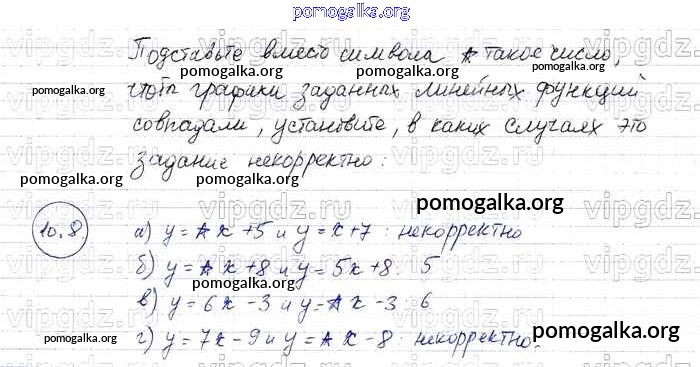 pomogalka.org
Подставьте вместо символа * такое число,
pomogalka.org pomogalka.org
чтобы графики заданных линейных функций
pomogalka.org pomogalka.org
совпадали, установите, в каких случаях это
задание некорректно:
pomogalka.org pomogalka.org
pomogalka.org
10.8. а) y = * x + 5 и y = x + 7 : некорректно
б) y = * x + 8 и y = 5x + 8 : 5
pomogalka.org
в) y = 6x - 3 и y = * x - 3 : 6
г) y = 7x - 9 и y = * x - 8 : некорректно.
pomogalka.org pomogalka.org
vipgdz.ru